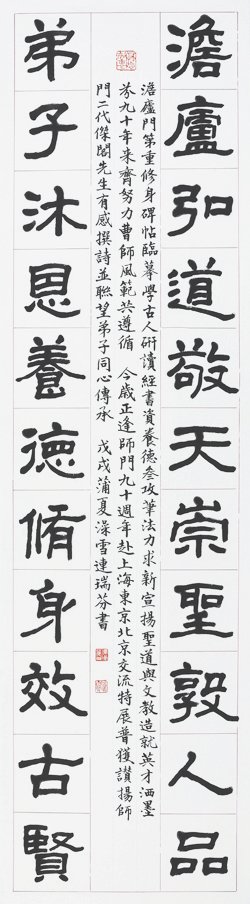 澹廬弘道敬天崇聖敦人品
澹廬門第重修身碑帖臨摹學古人研讀經書資養德叁攻筆法力求新宣揚聖道與文教造就英才洒墨
芬九十年来齊努力曹師風範共遵循 今歲正逢師門九十週年赴上海東京北京交流特展普獲讚揚師
門二代傑閣先生有感撰詩並聯望弟子同心傳承 戊戌蒲夏澡雪連瑞芬書
弟子沐恩養德脩身效古賢